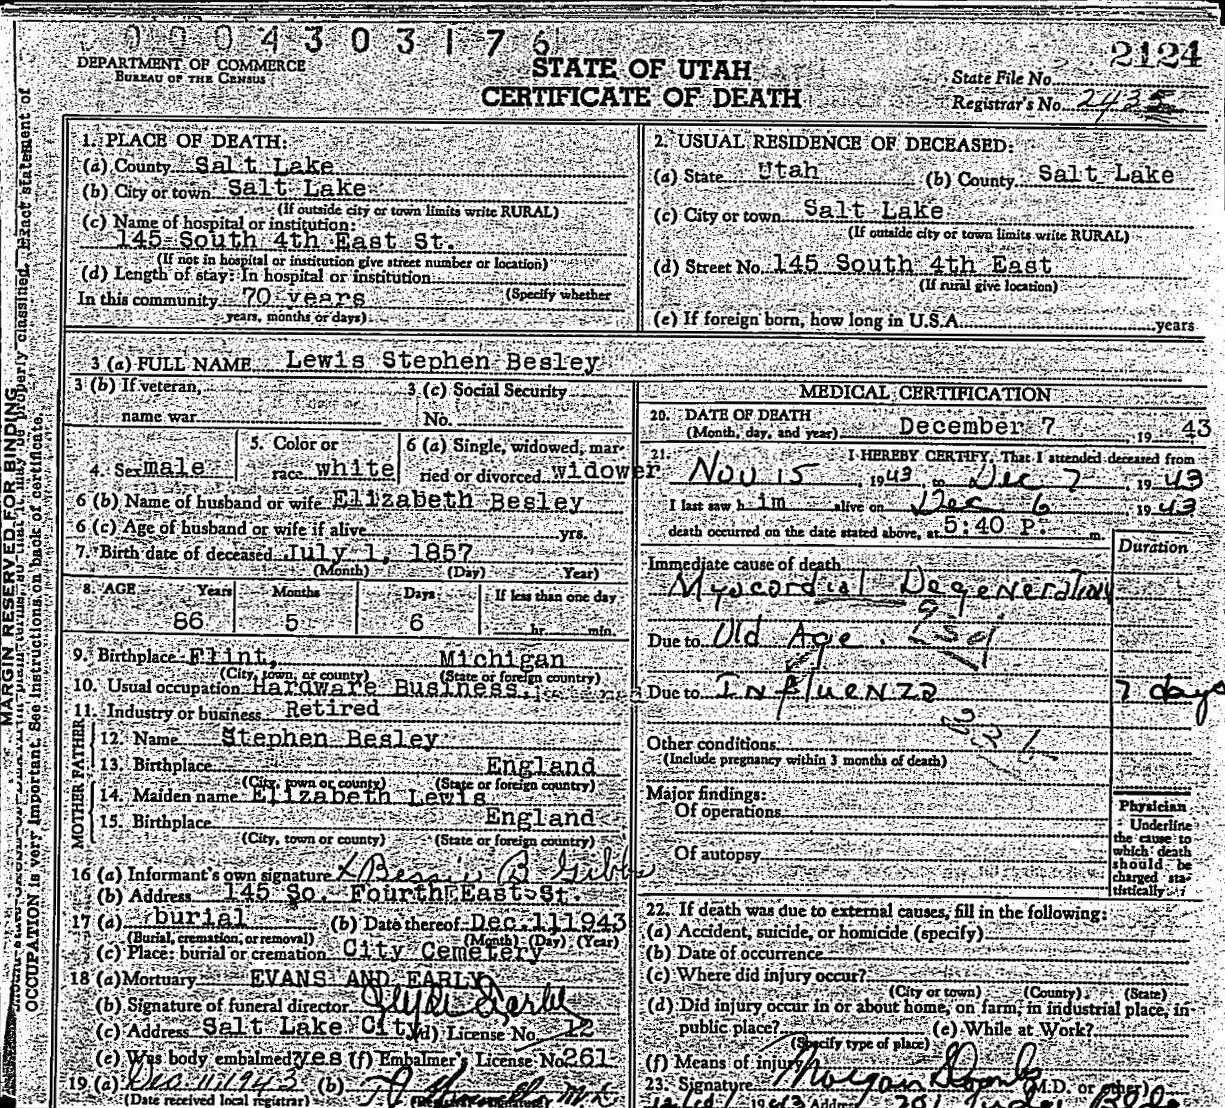 0004303176
DEPARTMENT OF COMMERCE
BUREAU OF THE CENSUS
STATE OF UTAH
CERTIFICATE OF DEATH
2124
State File No.
Registrar's No. 2435
MARGIN RESERVED FOR BINDING
OCCUPATION is very important. See instructions on back of certificate.
properly classified. Exact statement of
1. PLACE OF DEATH:
(a) County Salt Lake
(b) City or town Salt Lake
(If outside city or town limits write RURAL)
(c) Name of hospital or institution:
145 South 4th East St.
(If not in hospital or institution give street number or location)
(d) Length of stay: In hospital or institution
In this community 70 years (Specify whether
years, months or days)
2. USUAL RESIDENCE OF DECEASED:
(a) State Utah (b) County Salt Lake
(c) City or town Salt Lake
(If outside city or town limits write RURAL)
(d) Street No. 145 South 4th East
(If rural give location)
(e) If foreign born, how long in U.S.A. years
3 (a) FULL NAME Lewis Stephen Besley
3 (b) If veteran, 3 (c) Social Security
name war No.
4. Sex male 5. Color or race white 6 (a) Single, widowed, married or divorced widower
6 (b) Name of husband or wife Elizabeth Besley
6 (c) Age of husband or wife if alive yrs.
7. Birth date of deceased July 1, 1857
(Month) (Day) Year)
8. AGE Years Months Days If less than one day
86 5 6 hr. min.
9. Birthplace Flint, Michigan
(City, town, or county) (State or foreign country)
10. Usual occupation Hardware Business.
11. Industry or business Retired
FATHER
12. Name Stephen Besley
13. Birthplace England
(City, town or county) (State or foreign country)
MOTHER
14. Maiden name Elizabeth Lewis
15. Birthplace England
(City, town or county) (State or foreign country)
16 (a) Informant's own signature x Bessie B Gibbs
(b) Address 145 So. Fourth East St.
17 (a) burial (b) Date thereof Dec. 11 1943
(Burial, cremation, or removal) (Month) (Day) (Year)
(c) Place: burial or cremation City Cemetery
18 (a) Mortuary EVANS AND EARLY
(b) Signature of funeral director
(c) Address Salt Lake City (d) License No. 12
(e) Was body embalmed? yes (f) Embalmer's License No. 261
19 (a) Dec 11 1943 (b)
(Date received local registrar)
MEDICAL CERTIFICATION
20. DATE OF DEATH
(Month, day, and year) December 7, 1943
21. I HEREBY CERTIFY, That I attended deceased from
Nov 15, 1943, to Dec 7, 1943
I last saw h im alive on Dec 6 1943
death occurred on the date stated above, at 5:40 P. m.
Duration
Immediate cause of death
Myocordial Degeneration
Due to Old Age.
Due to Influenza 7 days
Other conditions
(Include pregnancy within 3 months of death)
Major findings:
Of operations
Of autopsy
Physician
Underline
the cause to
which death
should be
charged sta-
tistically.
22. If death was due to external causes, fill in the following:
(a) Accident, suicide, or homicide (specify)
(b) Date of occurrence
(c) Where did injury occur?
(City or town) (County) (State)
(d) Did injury occur in or about home, on farm, in industrial place, in-
public place? (e) While at Work?
(Specify type of place)
(f) Means of injury
23. Signature Morgan (M.D. or other)